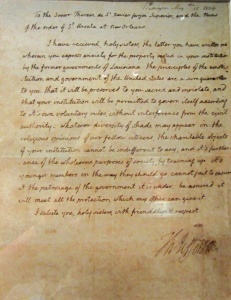 Washington May 15. 1804
To the Soeur Therese de St. Xavier farjon Superior, and the Nuns
of the order of St. Ursula at New Orleans.
I have received, holy sisters, the letter you have written me
wherein you express anxiety for the property vested in your institution
by the former governments of Louisiana. the principles of the constitu-
tion and government of the United States are a sure guarantee
to you that it will be preserved to you sacred and inviolate, and
that your institution will be permitted to govern itself according
to it's own voluntary rules, without interference from the civil
authority. Whatever diversity of shade may appear in the
religious opinions of our fellow citizens, the charitable objects
of your institution cannot be indifferent to any; and it's further-
ance of the wholesome purposes of society, by training up it's
younger members in the way they should go cannot fail to ensure
it the patronage of the government it is under. be assured it
will meet all the protection which my office can give it.
I salute you, holy sisters with friendship & respect.
Th: Jefferson